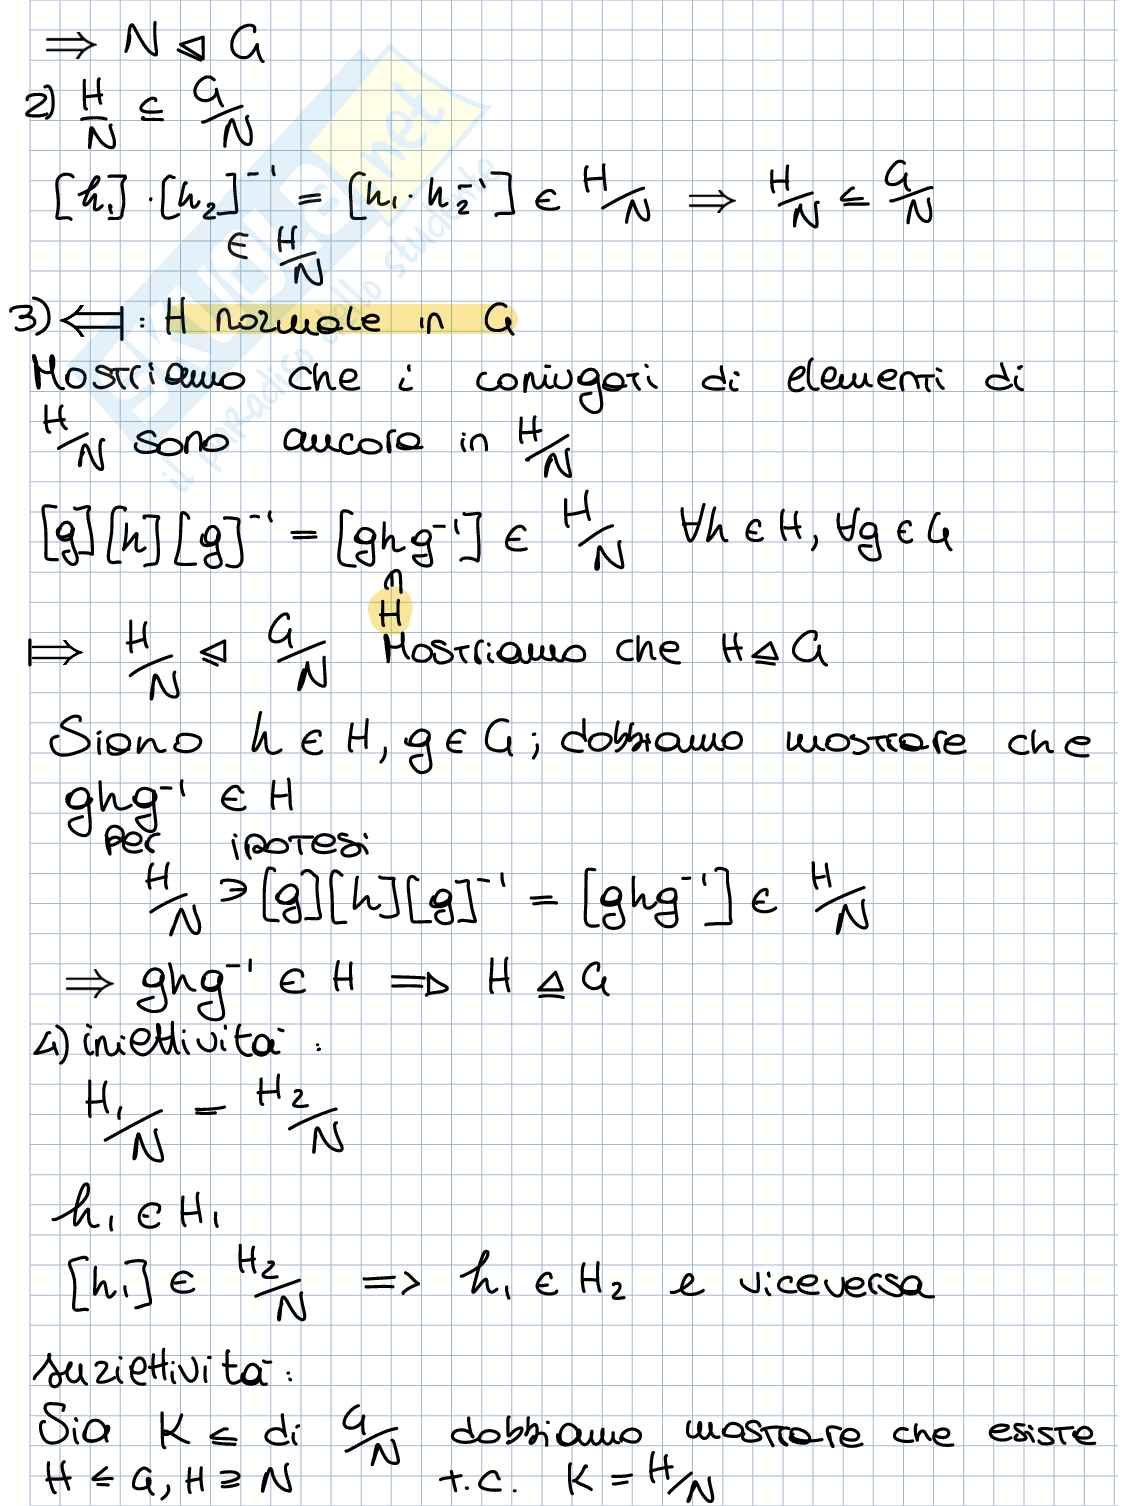 ⇒ N ⊲ G
2) H/N ⊆ G/N
[h₁]·[h₂]⁻¹ = [h₁·h₂⁻¹] ∈ H/N ⇒ H/N ≤ G/N
∈ H/N
3) ⟸|: H normale in G
Mostriamo che i coniugati di elementi di
H/N sono ancora in H/N
[g][h][g]⁻¹ = [ghg⁻¹] ∈ H/N ∀h ∈ H, ∀g ∈ G
∩
H
|⟹ H/N ⊴ G/N Mostriamo che H ⊴ G
Siano h ∈ H, g ∈ G; dobbiamo mostrare che
ghg⁻¹ ∈ H
per ipotesi
H/N ∋ [g][h][g]⁻¹ = [ghg⁻¹] ∈ H/N
⇒ ghg⁻¹ ∈ H ⇒ H ⊴ G
4) iniettività:
H₁/N = H₂/N
h₁ ∈ H₁
[h₁] ∈ H₂/N => h₁ ∈ H₂ e viceversa
suriettività:
Sia K ≤ di G/N dobbiamo mostrare che esiste
H ≤ G, H ⊇ N t.c. K = H/N
SKUOLA.net
il paradiso dello studente